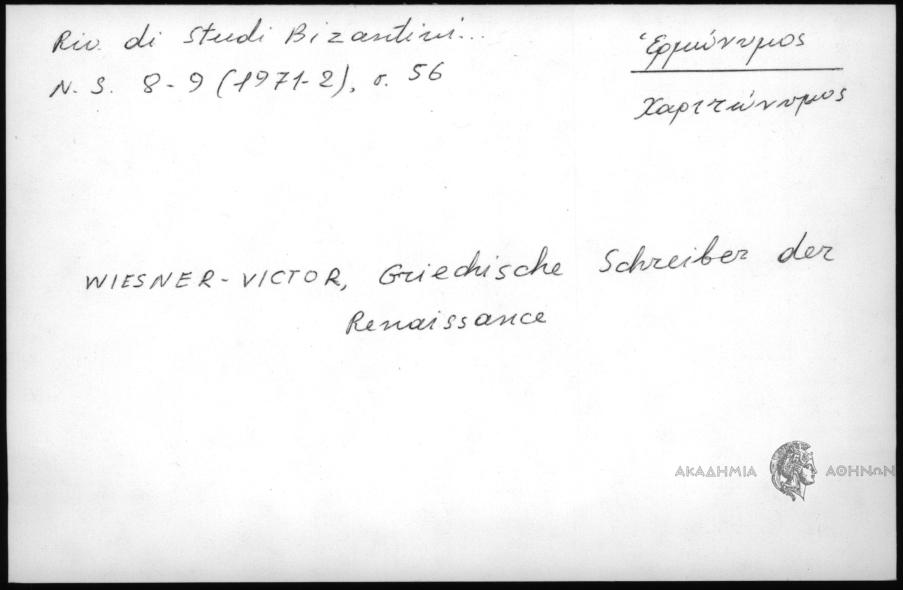 Riv. di Studi Bizantini...
N. S. 8-9 (1971-2), σ. 56
Ἑρμώνυμος
Χαριτώνυμος
WIESNER-VICTOR, Griechische Schreiber der
Renaissance
ΑΚΑΔΗΜΙΑ ΑΘΗΝΩΝ